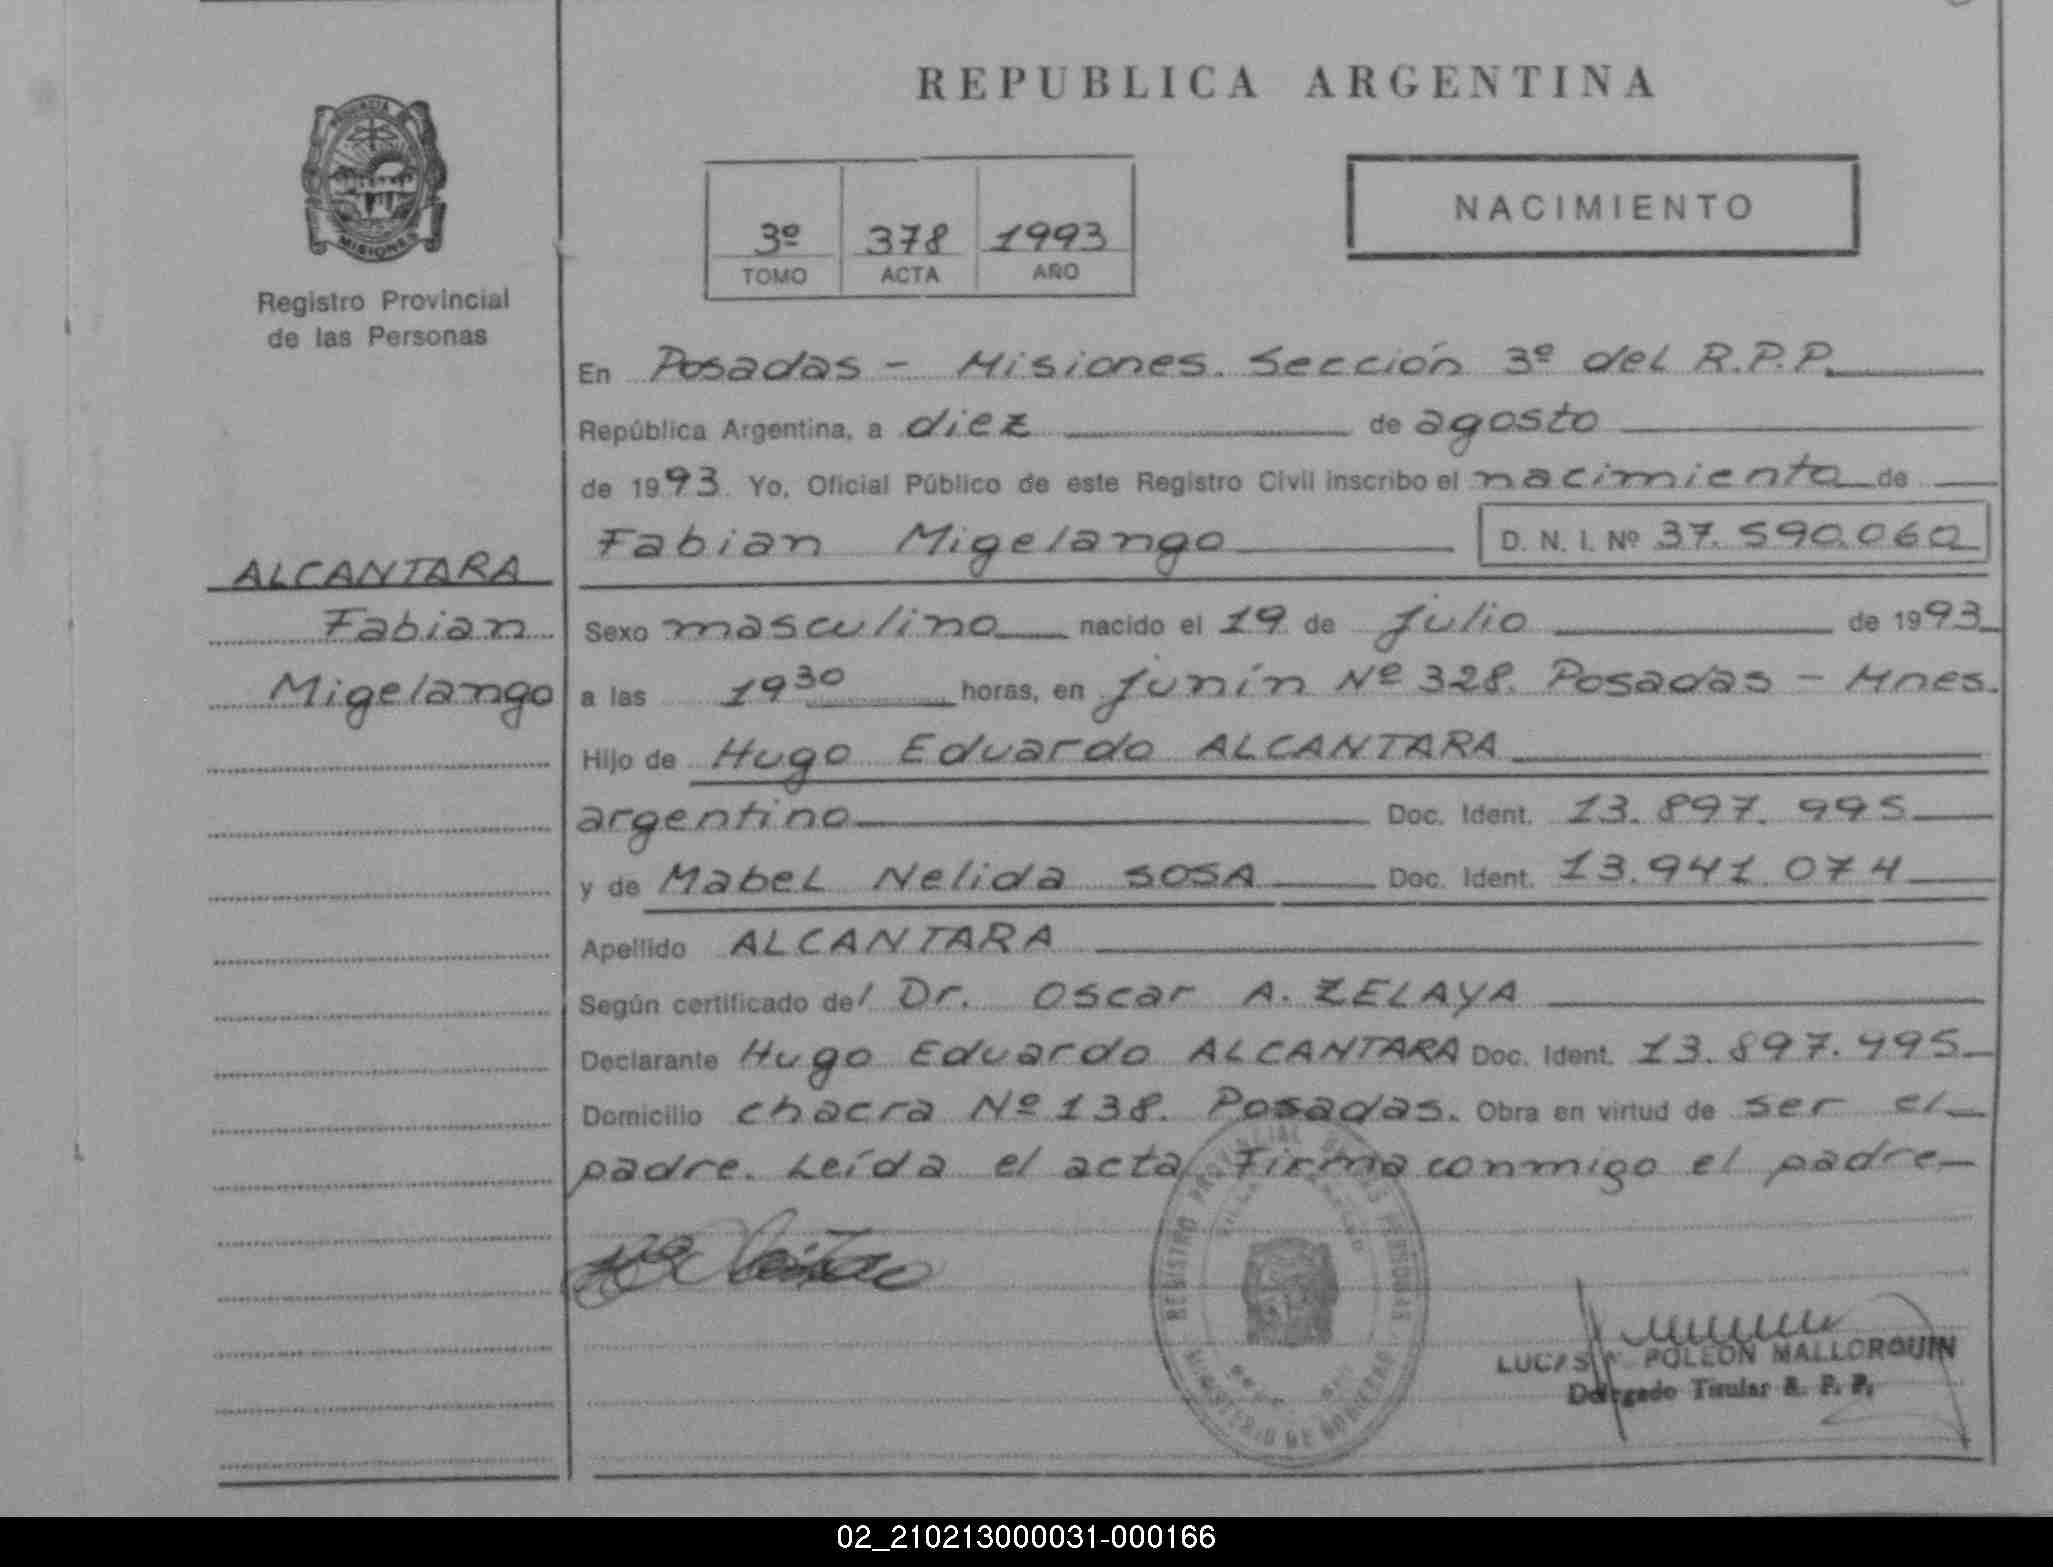 REPUBLICA ARGENTINA
PROVINCIA
MISIONES
Registro Provincial
de las Personas
NACIMIENTO
3º 378 1993
TOMO ACTA AÑO
En Posadas - Misiones. Sección 3º del R.P.P.
República Argentina, a diez de agosto
de 1993. Yo, Oficial Público de este Registro Civil inscribo el nacimiento de
Fabian Migelango D. N. I. Nº 37.590.060
ALCANTARA
Fabian
Migelango
Sexo masculino nacido el 19 de julio de 1993
a las 19 30 horas, en junín Nº 328. Posadas - Mnes.
Hijo de Hugo Eduardo ALCANTARA
argentino Doc. Ident. 13.897.995
y de Mabel Nelida SOSA Doc. Ident. 13.941.074
Apellido ALCANTARA
Según certificado del Dr. Oscar A. ZELAYA
Declarante Hugo Eduardo ALCANTARA Doc. Ident. 13.897.995
Domicilio chacra Nº 138. Posadas. Obra en virtud de ser el
padre. Leída el acta firma conmigo el padre
REGISTRO PROVINCIAL DE LAS PERSONAS
MINISTERIO DE GOBIERNO
LUCAS N. POLEON MALLORQUIN
Delegado Titular R. P. P.
02_210213000031-000166